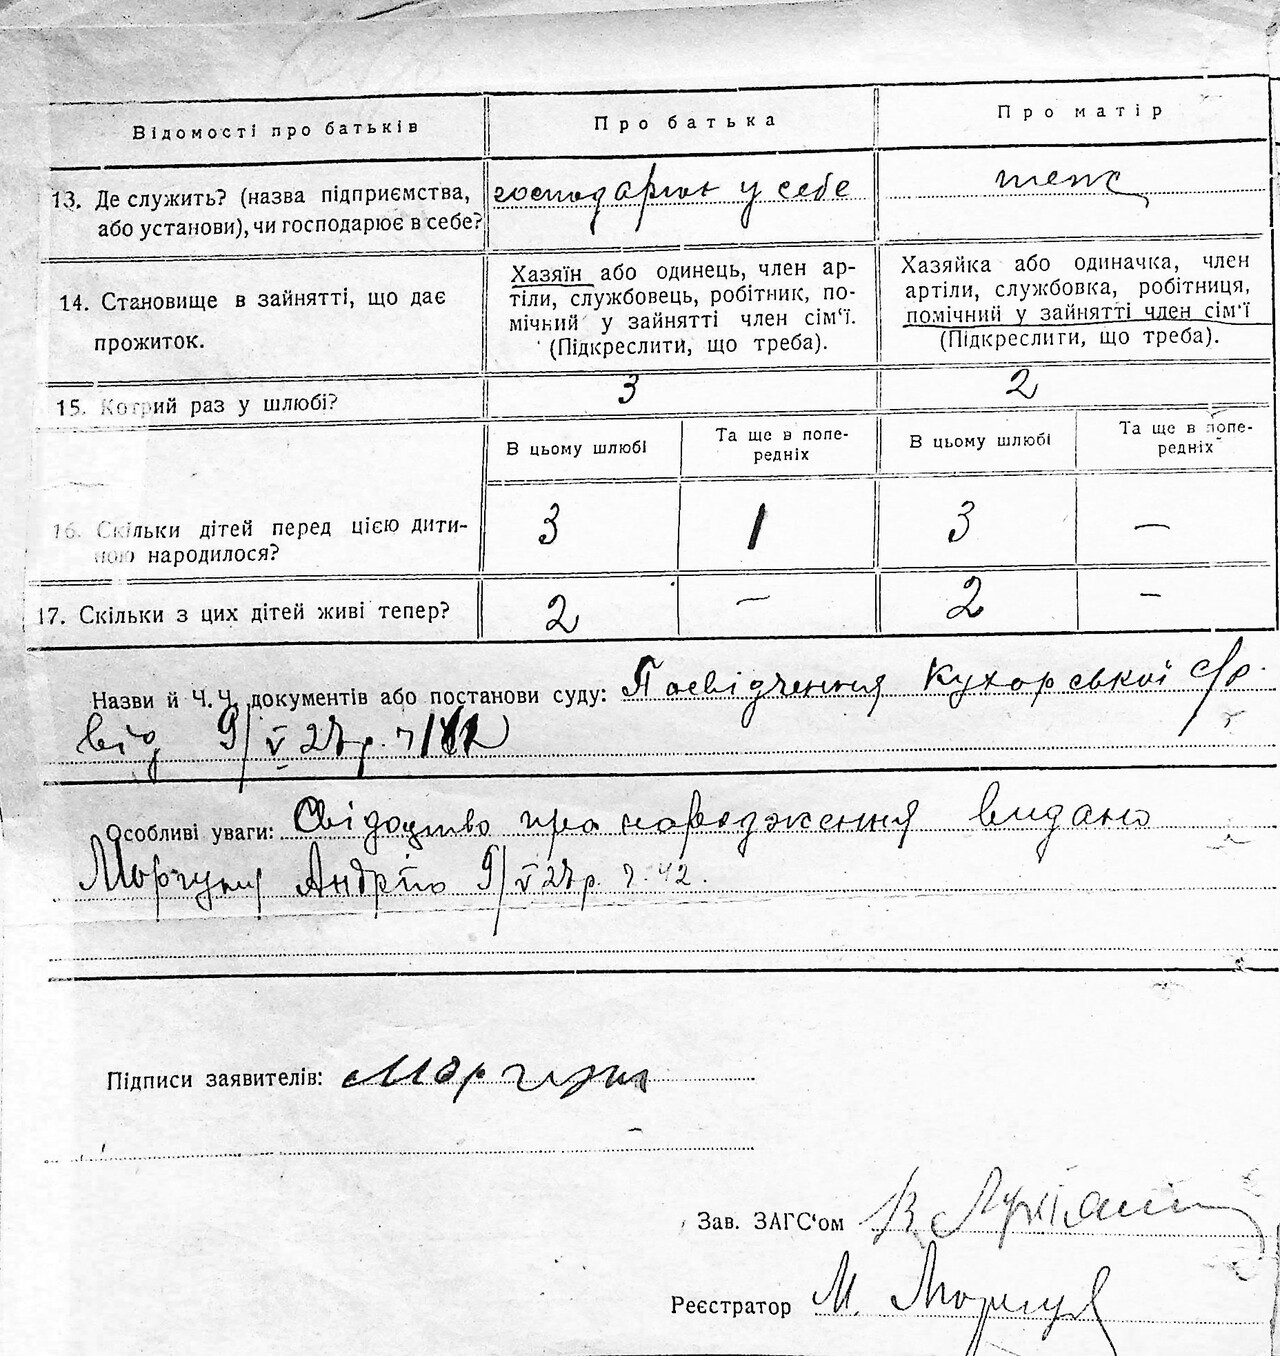 Відомості про батьків Про батька Про матір
13. Де служить? (назва підприємства, господарює у себе теж
або установи), чи господарює в себе?
14. Становище в зайнятті, що дає
прожиток.
Хазяїн або одинець, член ар-
тіли, службовець, робітник, по-
мічний у зайнятті член сім'ї.
(Підкреслити, що треба).
Хазяйка або одиначка, член
артіли, службовка, робітниця,
помічний у зайнятті член сім'ї
(Підкреслити, що треба).
15. Котрий раз у шлюбі? 3 2
В цьому шлюбі Та ще в попе-
редніх
В цьому шлюбі Та ще в попе-
редніх
16. Скільки дітей перед цією дити-
ною народилося? 3 1 3 —
17. Скільки з цих дітей живі тепер? 2 — 2 —
Назви й Ч. Ч. документів або постанови суду: Посвідчення Кухорської с/р.
від 9/V 27р.
Особливі уваги: Свідоцтво про народження видано
Моргуну Андрію 9/V 27р. ч. 42.
Підписи заявителів: Моргун
Зав. ЗАГС'ом В
Реєстратор М. Моргун